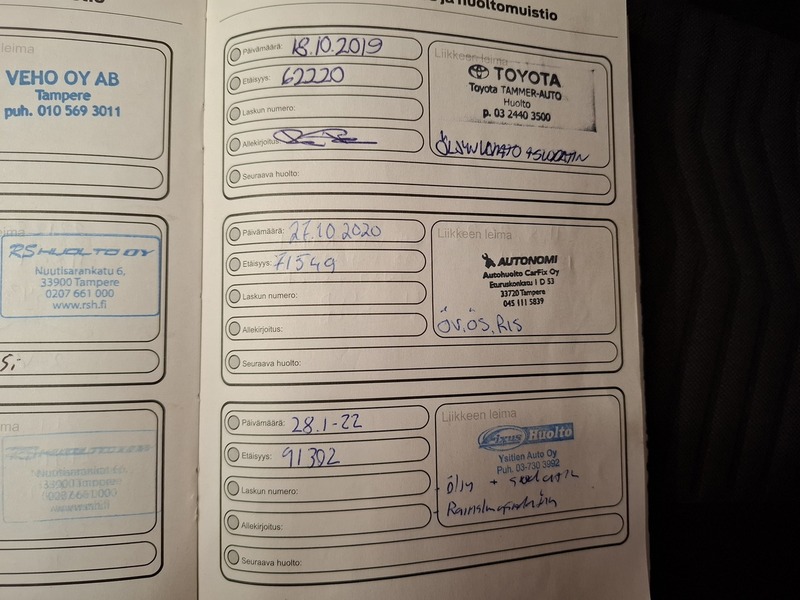 ja huoltomuistio
leima
VEHO OY AB
Tampere
puh. 010 569 3011
leima
RS HUOLTO OY
Nuutisarankatu 6,
33900 Tampere
0207 661 000
www.rsh.fi
RS HUOLTO OY
Nuutisarankatu 6,
33900 Tampere
Päivämäärä: 18.10.2019
Etäisyys: 62220
Laskun numero:
Allekirjoitus:
Seuraava huolto:
Liikkeen leima
TOYOTA
Toyota TAMMER-AUTO
Huolto
p. 03 2440 3500
ÖLJYNVAIHTO + SUODATIN
Päivämäärä: 27.10 2020
Etäisyys: 71549
Laskun numero:
Allekirjoitus:
Seuraava huolto:
Liikkeen leima
AUTONOMI
Autohuolto CarFix Oy
Eturuskonkatu 1 D 53
33720 Tampere
045 111 5839
ÖV, ÖS, RIS
Päivämäärä: 28.1-22
Etäisyys: 91302
Laskun numero:
Allekirjoitus:
Seuraava huolto:
Liikkeen leima
Fixus Huolto
Ysitien Auto Oy
Puh. 03-730 3992
- Öljy + suodatin
- Raitisilmasuodatin